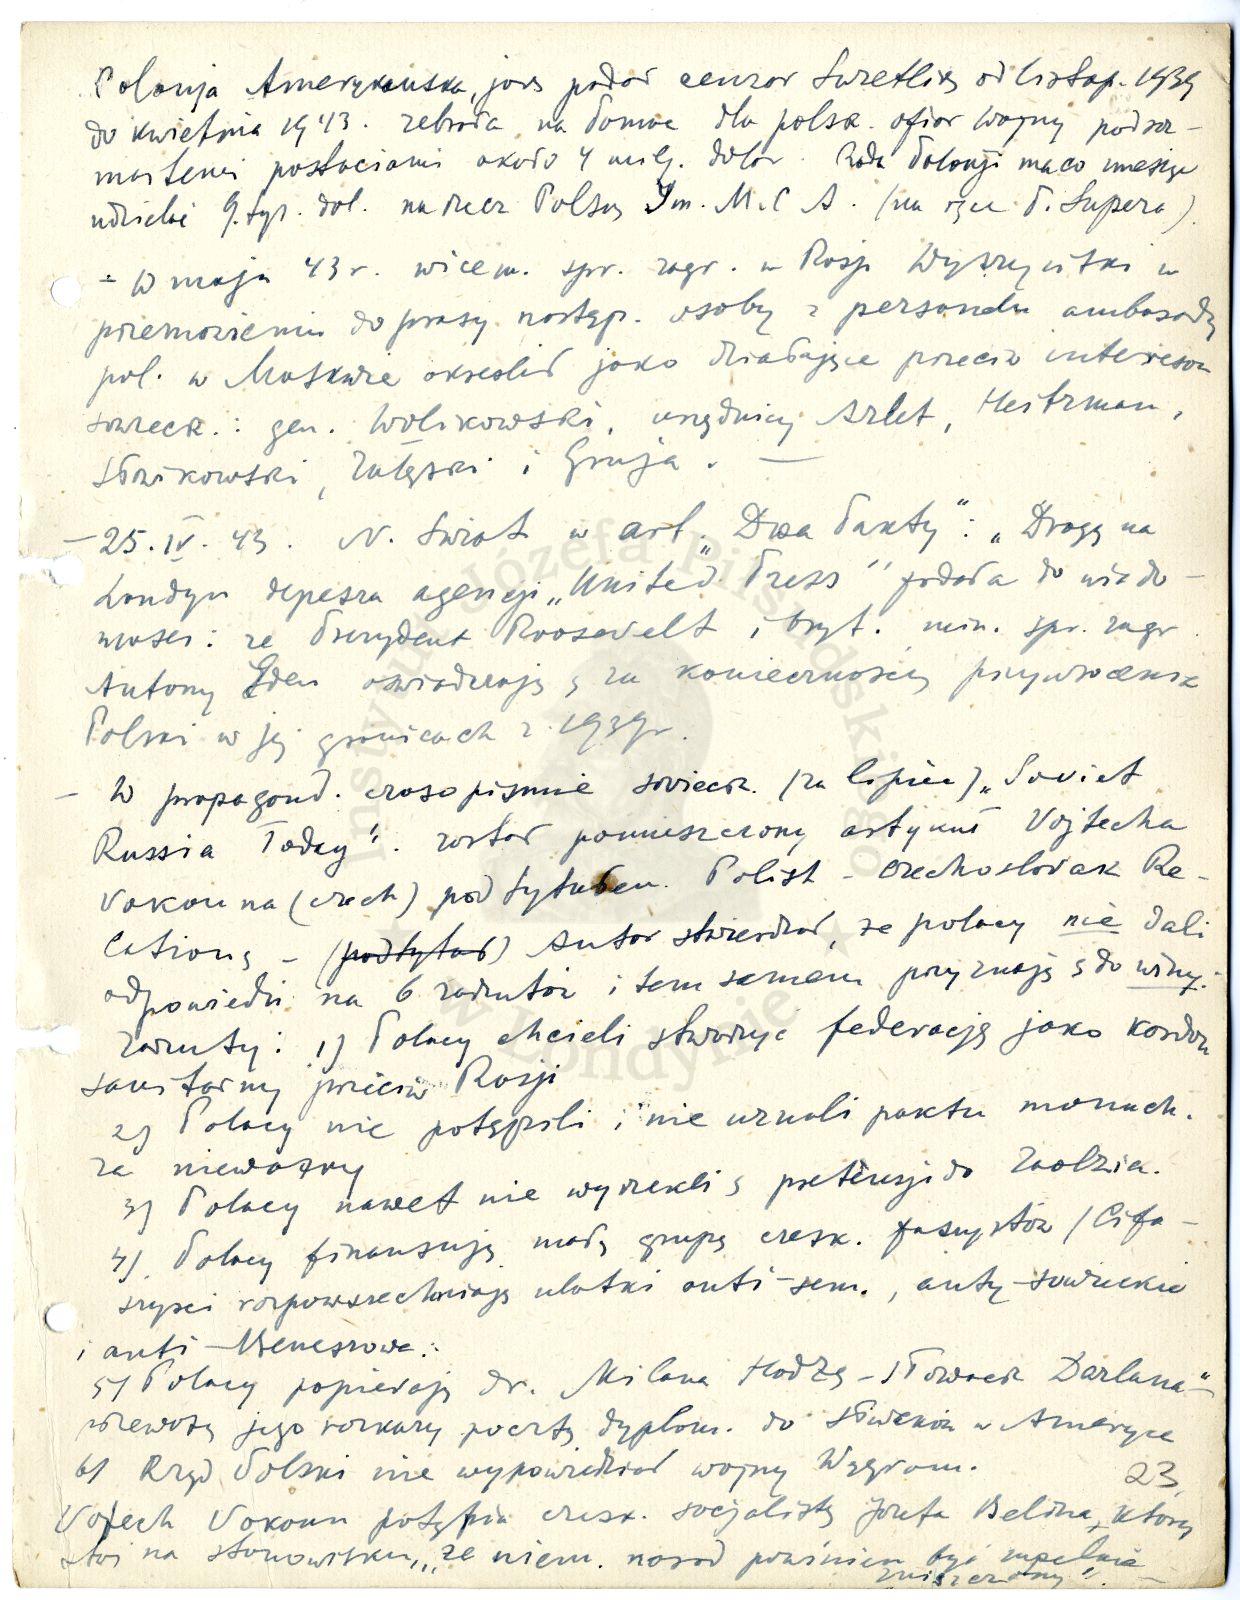 Polonja Amerykańska, jak podał cenzor Świetlik od listop. 1939
do kwietnia 1943. zebrała na pomoc dla polsk. ofiar wojny pod roz-
maitemi postaciami około 4 milj. dolar. Rada Polonji ma co miesiąc
udzielać 9. tys. dol. na rzecz Polsk. Im. M. C A. (na ręce P. Supera).
- W maju 43 r. wicem. spr. zagr. w Rosji Wyszyński w
przemówieniu do prasy następ. osoby z personelu ambasady
pol. w Moskwie określił jako działające przeciw interesom
sowieck.: gen. Wolikowski, urzędnicy Arlet, Heitzman,
Słowikowski, Załęski i Gruja. —
- 25. IV. 43. N. Świat w art. „Dwa Fakty": „Drogą na
Londyn depesza agencji „United Press" podała do wiado-
mości: że Prezydent Roosevelt i bryt. min. spr. zagr.
Antony Eden oświadczają ś za koniecznością przywrócenia
Polski w jej granicach z 1939 r.
- W propagand. czasopiśmie sowieck. (za lipiec) „Soviet
Russia Today". został pomieszczony artykuł Vojtecha
Vakouna (czech) pod tytułem. Polish - Czechoslovak Re-
lations - (podtytuł) Autor stwierdzał, że polacy nie dali
odpowiedzi na 6 zarzutów i tem samem przyznają ś do winy.
Zarzuty: 1) Polacy chcieli stworzyć federację jako kordon
sanitarny przeciw Rosji
2) Polacy nie potępili i nie uznali paktu monach.
za nieważny
3) Polacy nawet nie wyrzekli ś pretensji do Zaolzia.
4) Polacy finansują małą grupę czesk. faszystów (Ci fa-
szyści rozpowszechniają ulotki anti-sem., anty-sowieckie
i anti-Beneszowe.
5) Polacy popierają dr. Milana Hodżę - „Słowack Darlana"-
przewożą jego rozkazy pocztą dyplom. do Słowaków w Ameryce
6) Rząd Polski nie wypowiedział wojny Węgrom.
23.
Vojtech Vakoun potępia czesk. socjalistę Józefa Belina, który
stoi na stanowisku, „że niem. naród powinien być zupełnie
zniszczony". —
Instytut Józefa Piłsudskiego
w Londynie